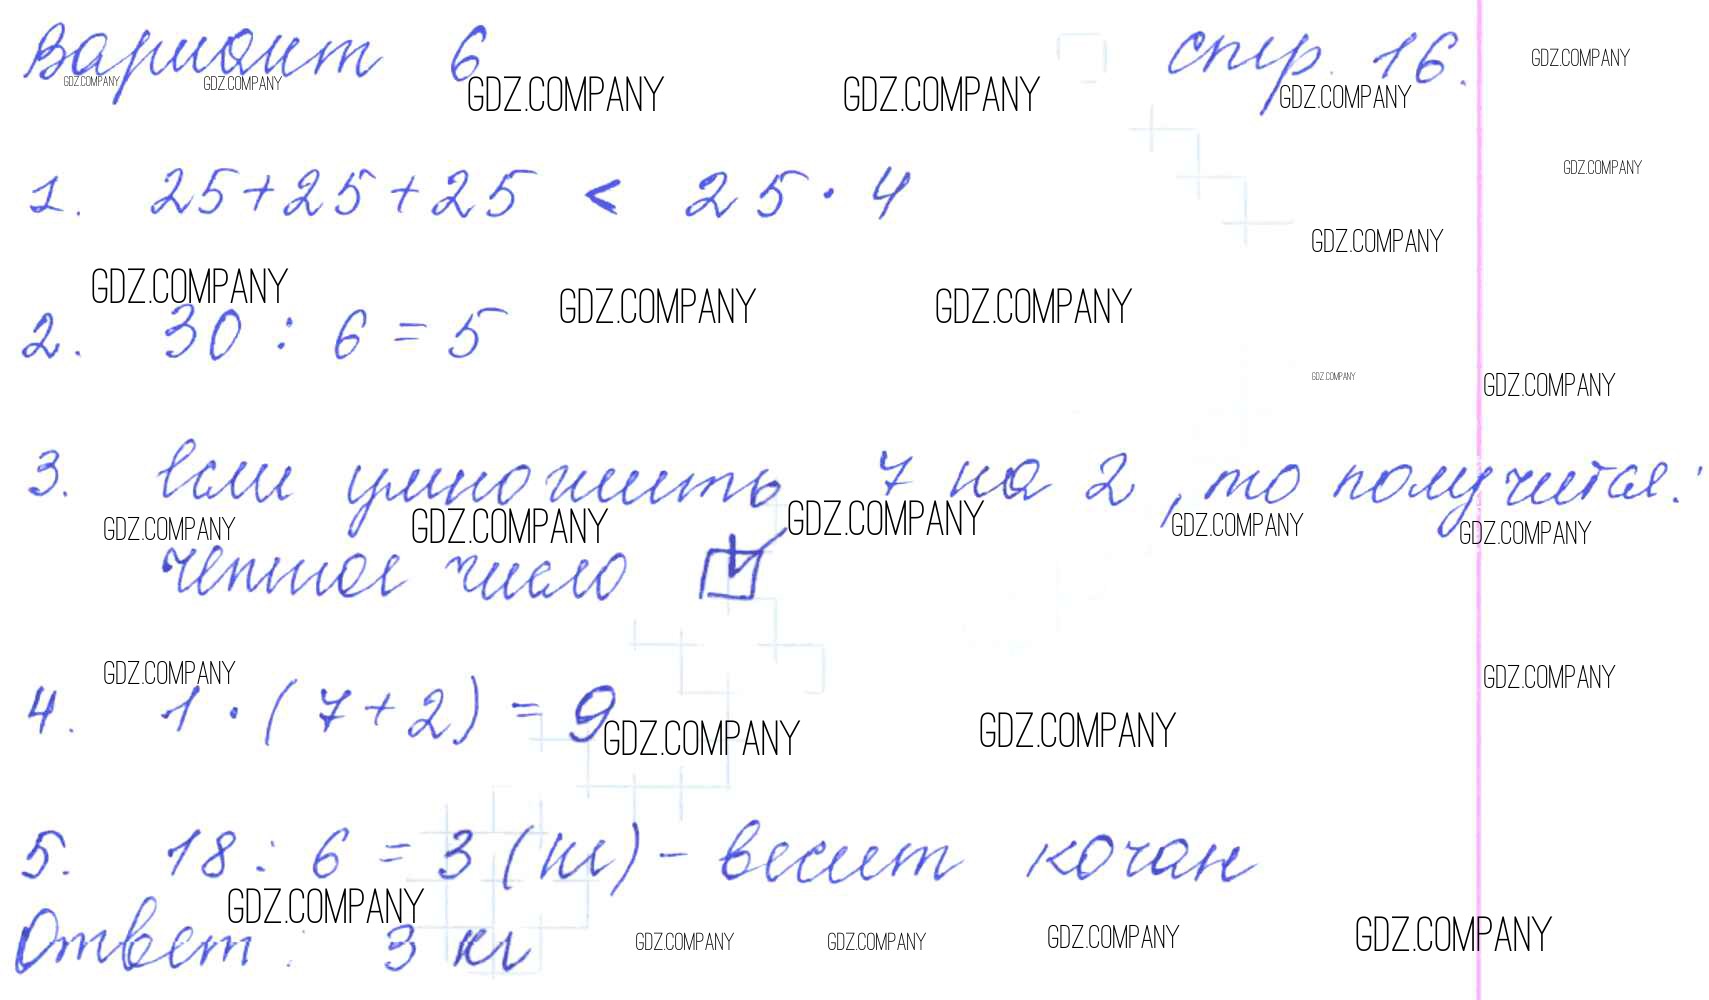 Вариант 6 стр. 16.
GDZ.COMPANY GDZ.COMPANY GDZ.COMPANY GDZ.COMPANY GDZ.COMPANY GDZ.COMPANY
1. 25+25+25 < 25 · 4
GDZ.COMPANY
GDZ.COMPANY
GDZ.COMPANY GDZ.COMPANY GDZ.COMPANY
2. 30 : 6 = 5
GDZ.COMPANY GDZ.COMPANY
3. Если умножить 7 на 2, то получится:
GDZ.COMPANY GDZ.COMPANY GDZ.COMPANY GDZ.COMPANY GDZ.COMPANY
четное число ☑
GDZ.COMPANY GDZ.COMPANY
4. 1 · (7+2) = 9
GDZ.COMPANY GDZ.COMPANY
5. 18 : 6 = 3 (кг) - весит кочан
GDZ.COMPANY
Ответ : 3 кг
GDZ.COMPANY GDZ.COMPANY GDZ.COMPANY GDZ.COMPANY